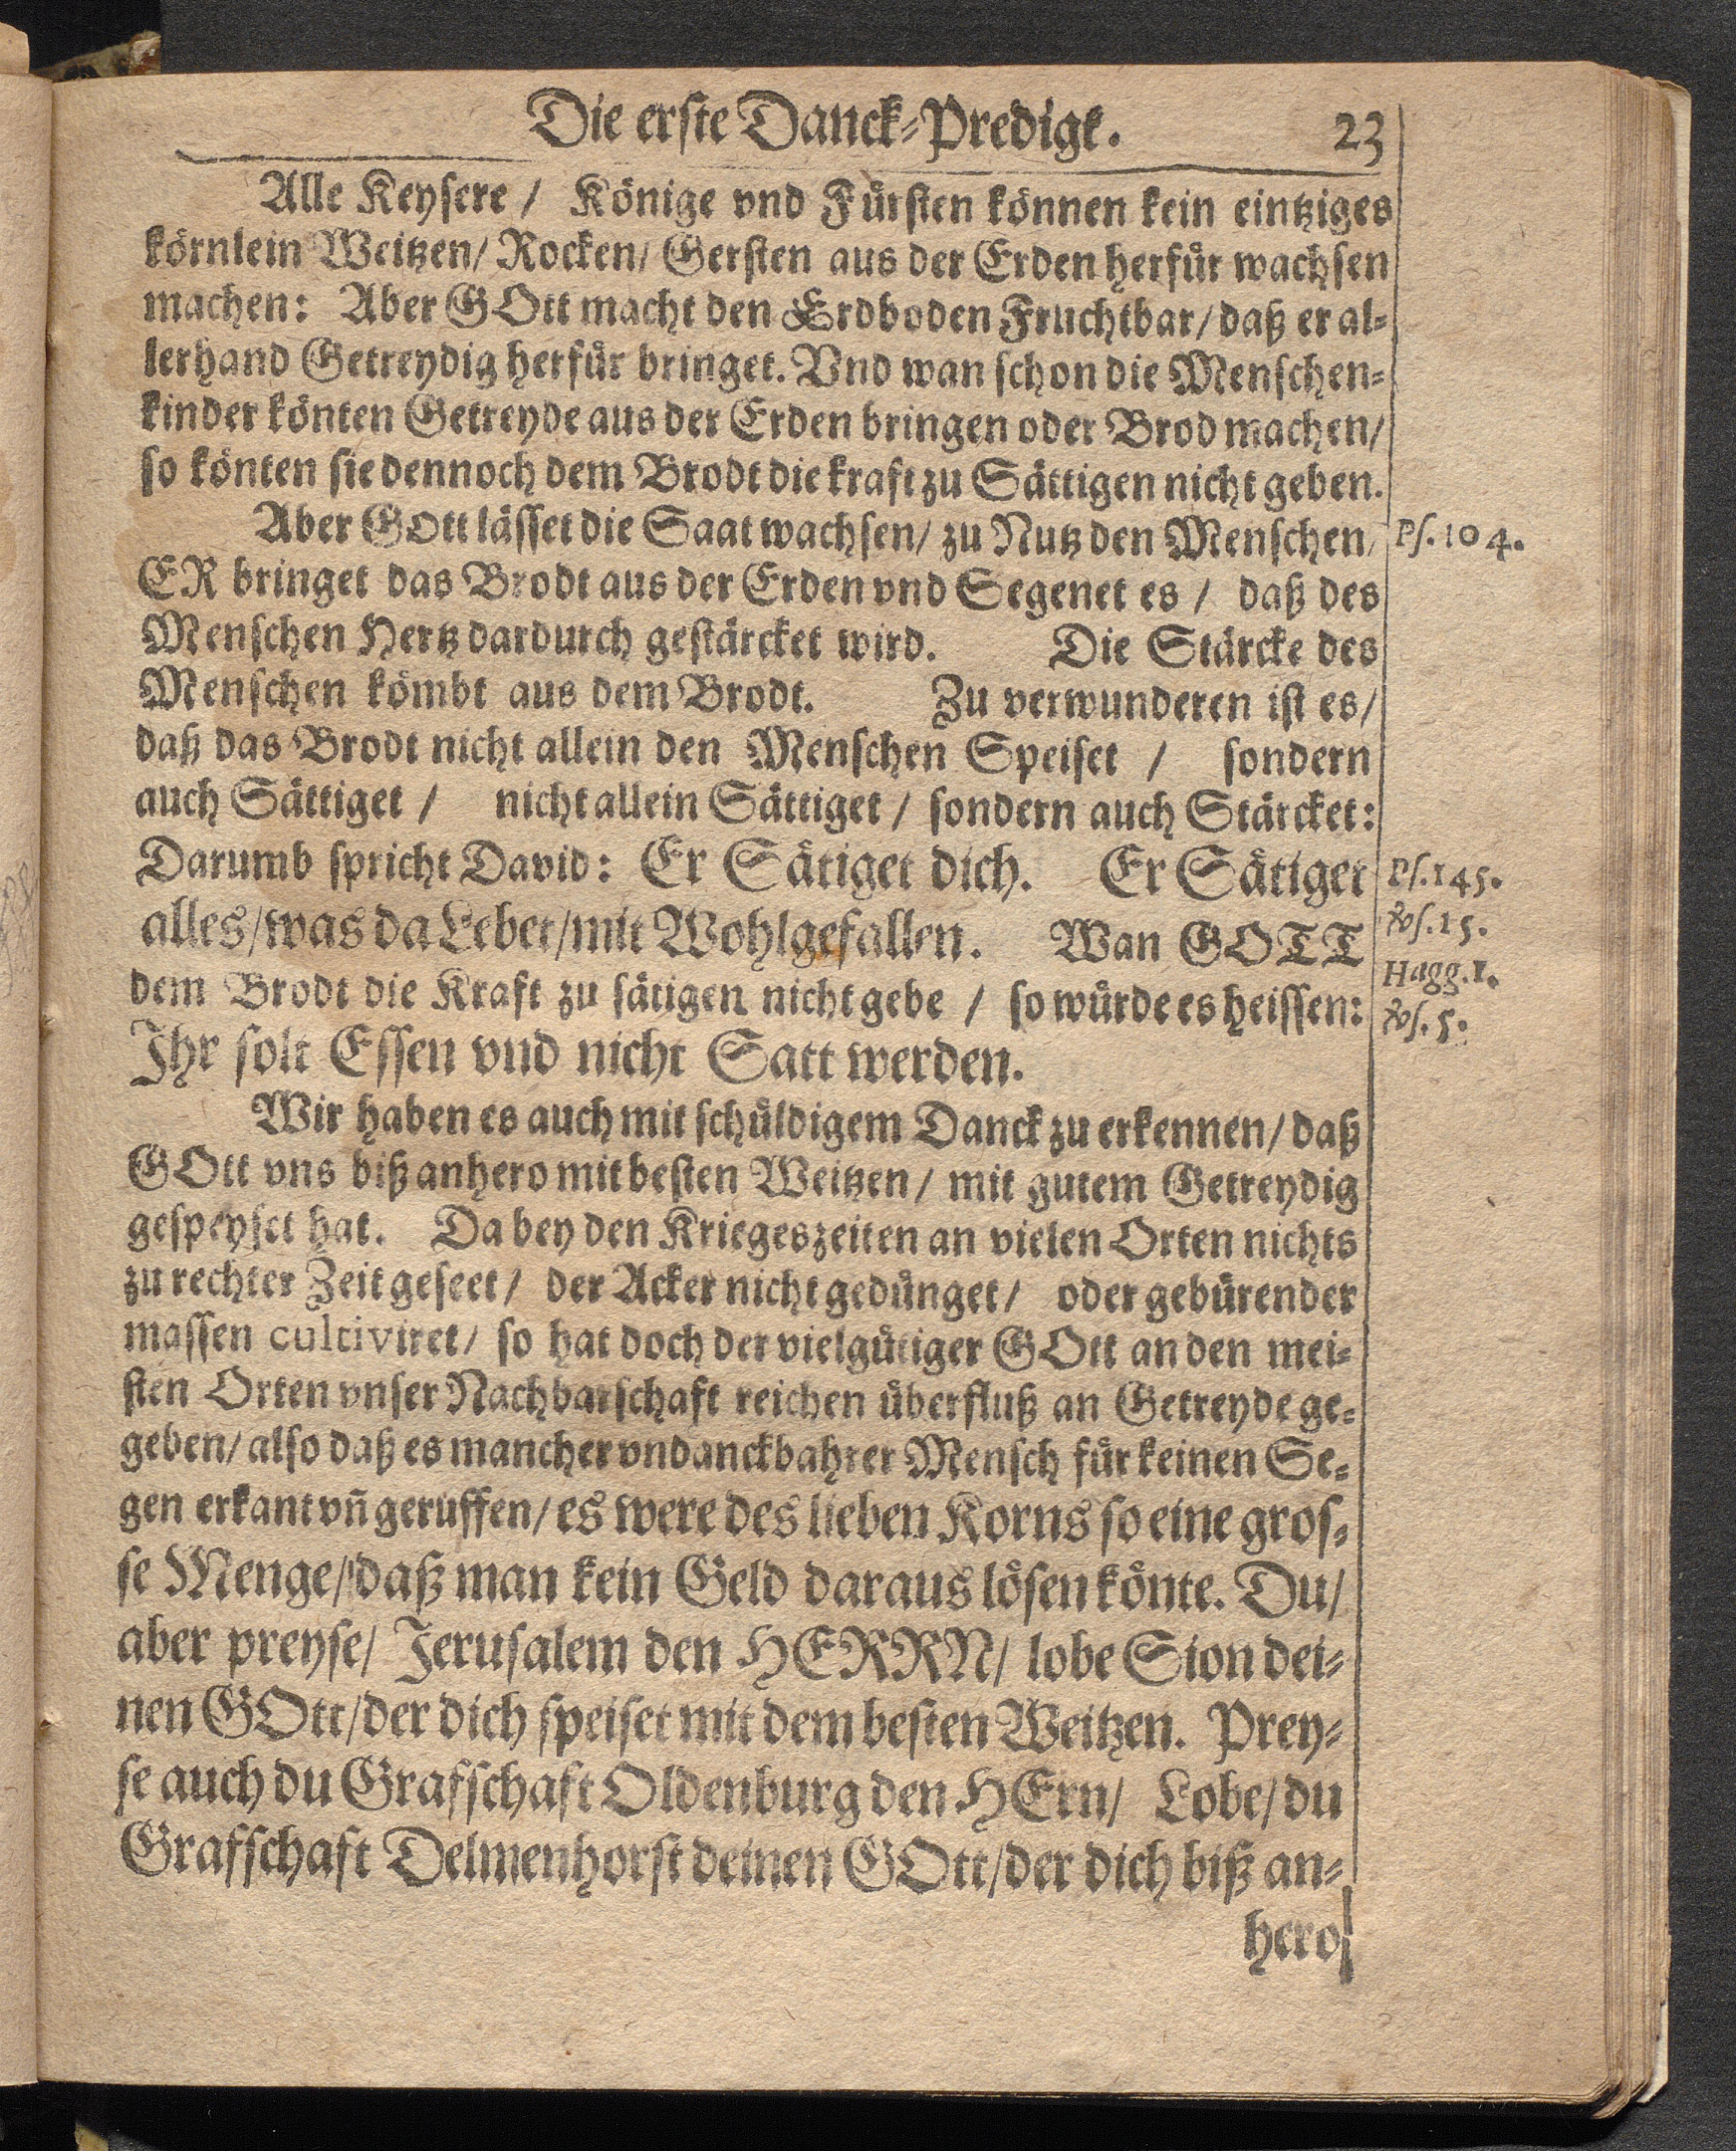 Die erste Danck-Predigt. 23
Alle Keysere / Könige vnd Fürsten können kein eintziges
körnlein Weitzen/ Rocken/ Gersten aus der Erden herfür wachsen
machen: Aber GOtt macht den Erdboden Fruchtbar/ daß er al-
lerhand Getreydig herfür bringet. Vnd wan schon die Menschen-
kinder könten Getreyde aus der Erden bringen oder Brod machen/
so könten sie dennoch dem Brodt die kraft zu Sättigen nicht geben.
Aber GOtt lässet die Saat wachsen/ zu Nutz den Menschen/ Ps. 104.
ER bringet das Brodt aus der Erden vnd Segenet es / daß des
Menschen Hertz dardurch gestärcket wird. Die Stärcke des
Menschen kömbt aus dem Brodt. Zu verwunderen ist es/
daß das Brodt nicht allein den Menschen Speiset / sondern
auch Sättiget / nicht allein Sättiget / sondern auch Stärcket:
Darumb spricht David: Er Sätiget dich. Er Sätiget Ps. 145.
alles/was da Lebet/mit Wohlgefallen. Wan GOTT vs. 15.
dem Brodt die Kraft zu sätigen nicht gebe / so würde es heissen: Hagg. 1.
Ihr solt Essen vnd nicht Satt werden. vs. 5.
Wir haben es auch mit schüldigem Danck zu erkennen/ daß
GOtt vns biß anhero mit besten Weitzen/ mit gutem Getreydig
gespeyset hat. Da bey den Kriegeszeiten an vielen Orten nichts
zu rechter Zeit geseet/ der Acker nicht gedünget/ oder gebürender
massen cultiviret/ so hat doch der vielgütiger GOtt an den mei-
sten Orten vnser Nachbarschaft reichen überfluß an Getreyde ge-
geben/ also daß es mancher vndanckbahrer Mensch für keinen Se-
gen erkant vñ geruffen/ es were des lieben Korns so eine gros-
se Menge/ daß man kein Geld daraus lösen könte. Du/
aber preyse/ Jerusalem den HERRN/ lobe Sion dei-
nen GOtt/der dich speiset mit dem besten Weitzen. Prey-
se auch du Grafschaft Oldenburg den HErn/ Lobe/ du
Grafschaft Delmenhorst deinen GOtt/der dich biß an-
hero